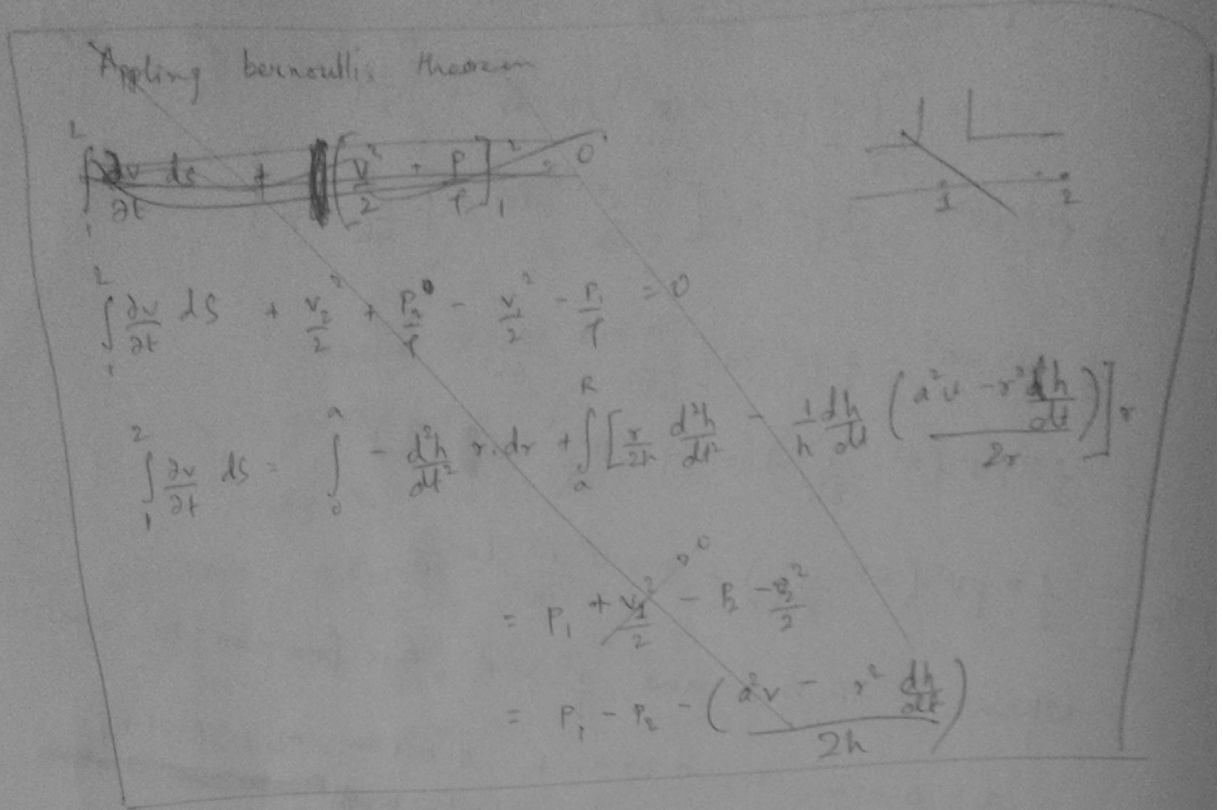 Appling bernoullis theorem
∫₁² ∂v/∂t ds + [v²/2 + P/ρ]₁² = 0
1 2
∫₁² ∂v/∂t dS + v₂²/2 + P₂/ρ - v₁²/2 - P₁/ρ = 0
∫₁² ∂v/∂t ds = ∫₀ᵃ - d²h/dt² r.dr + ∫ₐᴿ [r/2h d²h/dt² - 1/h dh/dt ((a²v - r² dh/dt)/2r)]
= P₁ + v₁²/2 - P₂ - v₂²/2
= P₁ - P₂ - ((a²v - r² dh/dt)/2h)